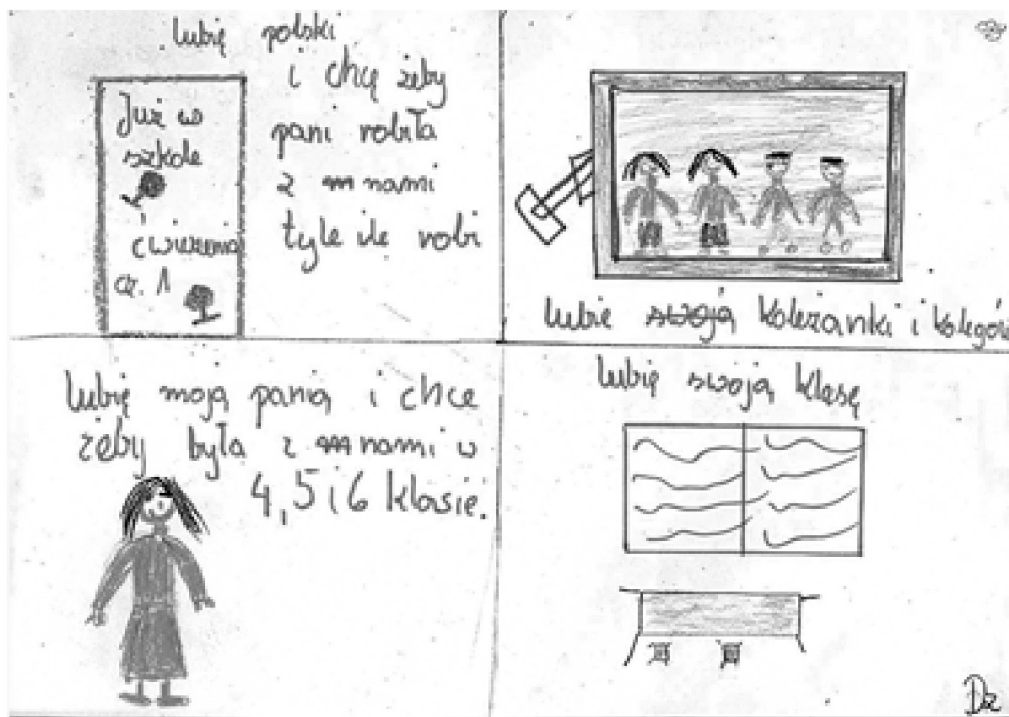 lubię polski
i chcę żeby
pani robiła
z nami
tyle ile robi
Już w
szkole
ćwiczenia
cz. 1
lubie swoją koleżanki i kolegów
lubię moją panią i chce
żeby była z nami w
4, 5 i 6 klasie.
lubię swoją klasę
Dz